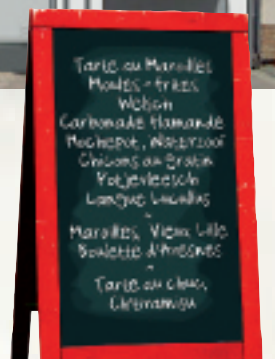 Tarte au Maroilles
Moules-frites
Welsch
Carbonade flamande
Hochepot, Waterzooï
Chicons au gratin
Potjevleesch
Langue Lucullus
-
Maroilles, Vieux Lille
Boulette d'Avesnes
-
Tarte au chuc,
Ch'tiramisu